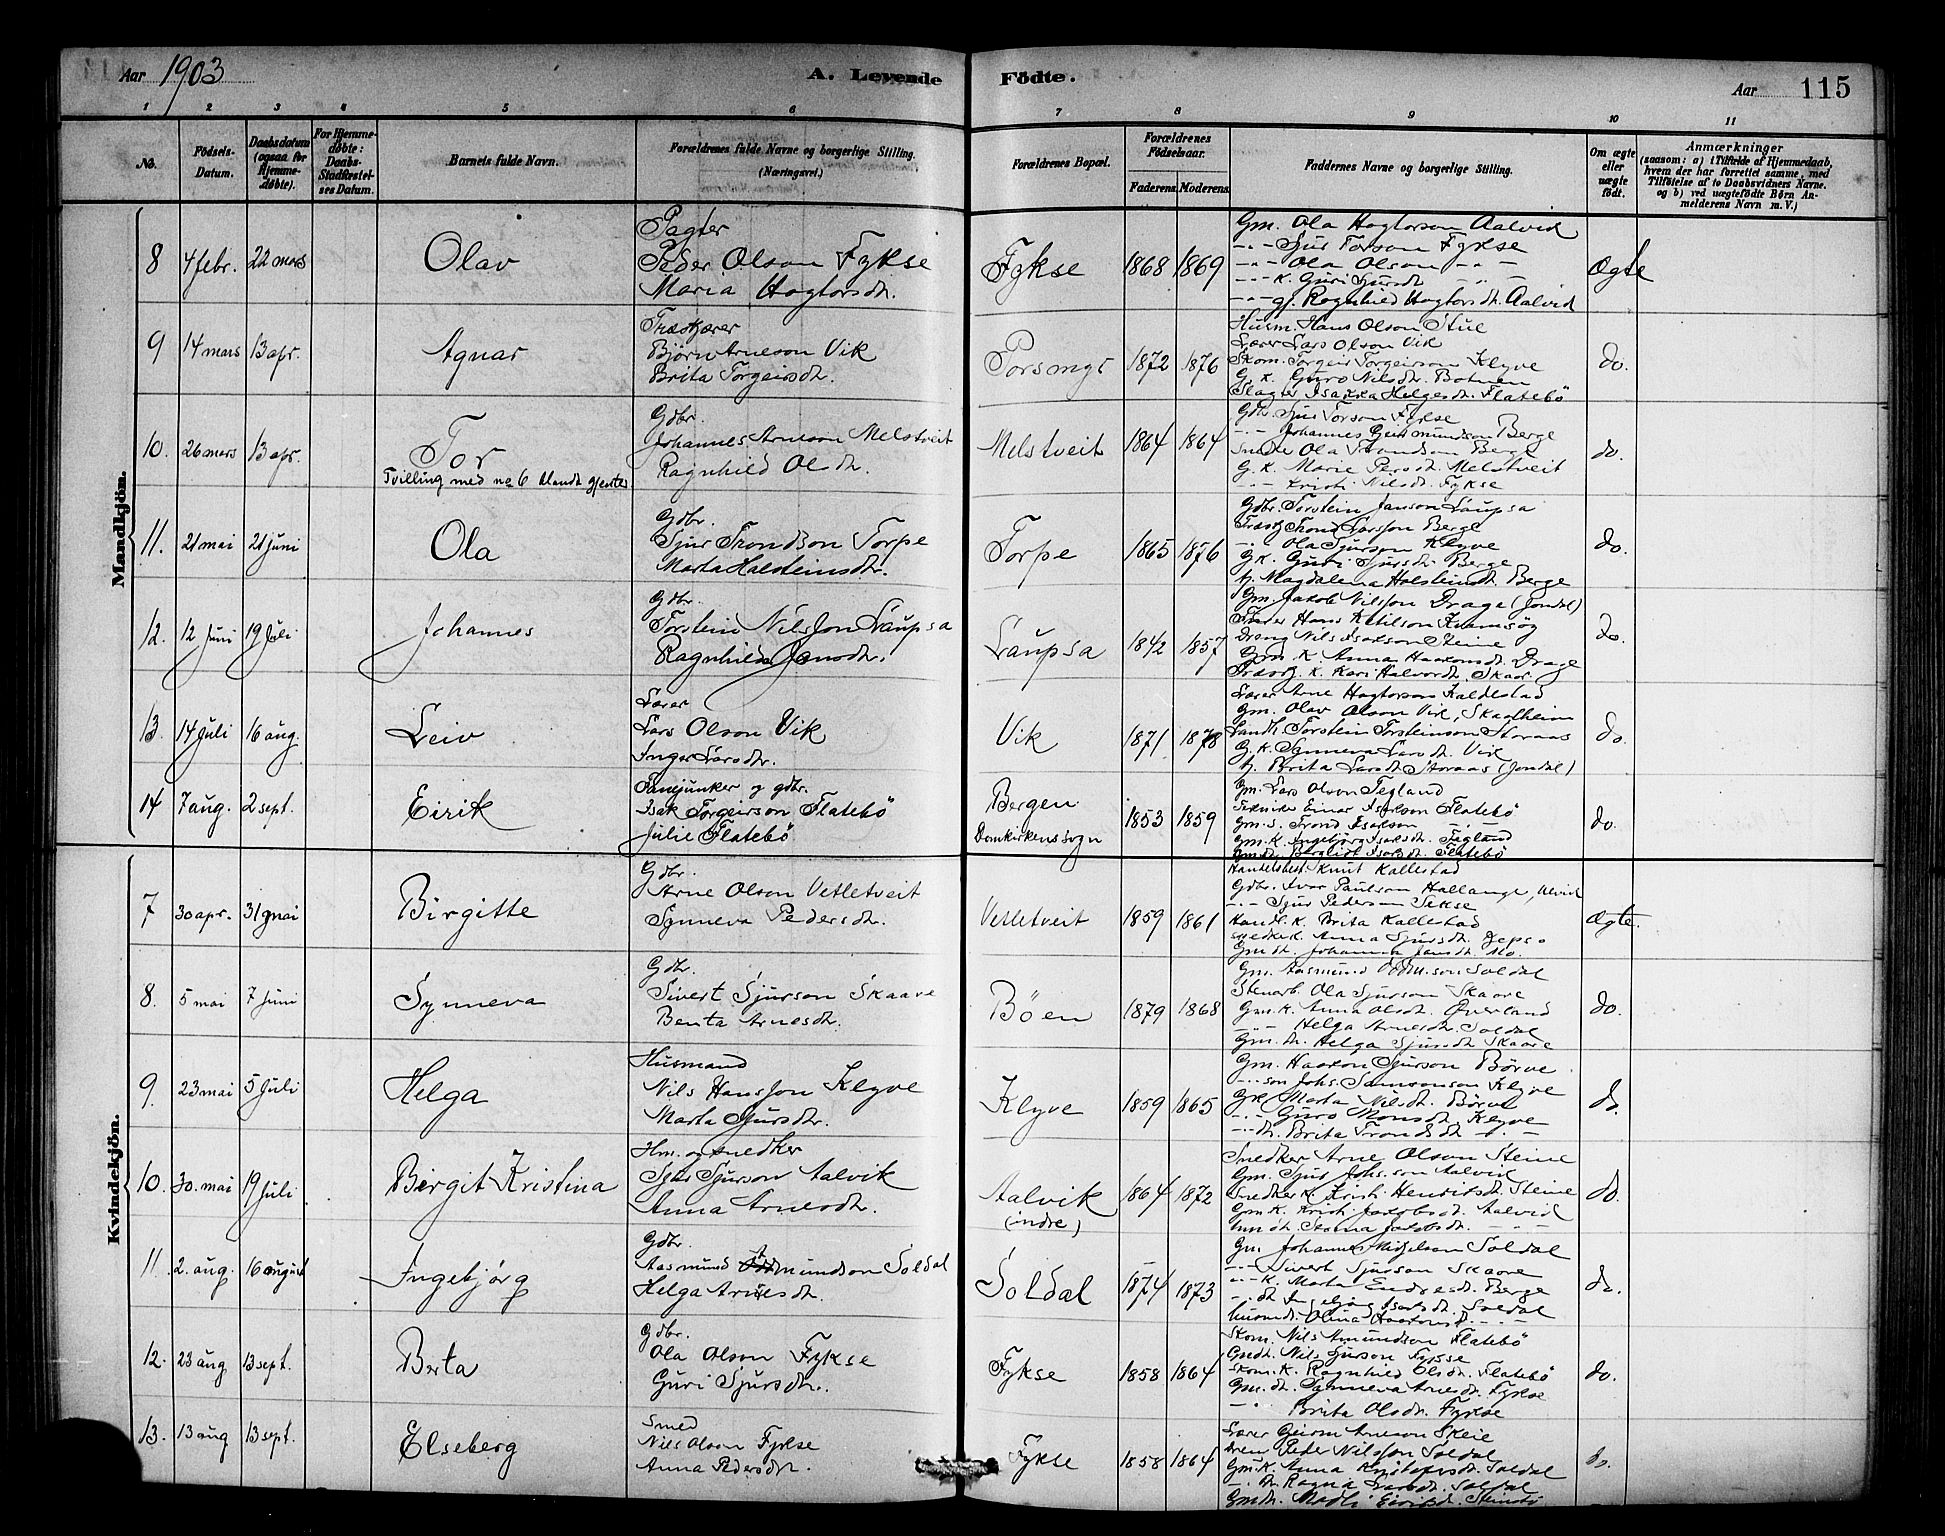 Aar 1903
A. Levende Födte.
Aar 115
1 2 3 4 5 6 7 8 9 10 11
No.
Födsels-Datum.
Daabsdatum (ogsaa for Hjemme-döbte).
For Hjemme-döbte: Daabs-Stadfæstel-ses Datum.
Barnets fulde Navn.
Forældrenes fulde Navne og borgerlige Stilling. (Næringsvei.)
Forældrenes Bopæl.
Forældrenes Födselsaar.
Faderens. Moderens.
Faddernes Navne og borgerlige Stilling.
Om ægte eller uægte födt.
Anmærkninger
(saasom: a) i Tilfælde af Hjemmedaab, hvem der har forrettet samme, med Tilföielse af to Daabsvidners Navne, og b) ved uægtefödte Börn An-melderens Navn m. V.)
Mandkjön.
8 4 febr. 22 mars Olav
Pagter
Peder Olson Fykse
Maria Hagtorsdtr.
Fykse 1868 1869
Gm. Ola Hagtorson Aalvid
-"- Sjur Torson Fykse
-"- Ola Olson -"-
-"- K. Guri Sjursdt "
-"- gj. Ragnhild Hagtorsdt. Aalvid
Ægte
9 14 mars 13 apr. Agnar
Træskjærer
Björn Arneson Vik
Brita Torgeirsdtr.
Porsmyr 1872 1876
Husm. Hans Olson Stue
Lærer Lars Olson Vik
Skom. Torgeir Torgeirson Klyve
G. K. Guro Nilsdtr. Botnen
Slagter Isakka Helgesdt. Flatebö
do.
10. 26 mars 13 apr. Tor
Tvilling med no 6 blandt gjenter
Gdbr.
Johannes Arneson Melstveit
Ragnhild Olsdtr.
Melstveit 1864 1864
Gdbr. Sjur Torson Fykse
-"- Johannes Geirmundson Berge
Ola Trondson Berge
G. K. Marie Persdt. Melstveit
-"- Kristi Nilsdt. Fykse
do.
11. 21 mai 21 juni Ola
Gdbr.
Sjur Trondson Torpe
Marta Halsteinsdtr.
Torpe 1865 1876
Gdbr. Torstein Janson Laupsa
Trond Larsson Berge
-"- Ola Sjurson Klyve
G. K. Guri Sjursdt. Berge
tj. Magdalena Holsteinsdt. Berge
do.
12. 12 juni 19 juli Johannes
Gdbr.
Torstein Nilsson Laupsa
Ragnhild Jansdtr.
Laupsa 1842 1857
Gm. Jakob Nilsson Drage (Jondal)
Hans Ketilson Kvamsög
Dreng Nils Isakson Steine
Gm. K. Anna Haakonsdt. Drage
K. Kari Halvordt. Skaar
do.
13. 14 juli 16 aug. Leiv
Lærer
Lars Olson Vik
Inger Larsdtr.
Vik 1871 1878
Lærer Arne Hagtorson Kaldestad
Gm. Olav Olson Vik, Skaalheim
Landh. Torstein Torsteinson Storaas
G. K. Synneva Larsdt. Vik
tj. Brita Larsdt. Storaas (Jondal)
do.
14 7 aug. 2 sept. Eirik
Fanejunker og gdbr.
Isak Torgeirson Flatebö
Julie Flatebö
Bergen
Domkirkenssogn
1853 1859
Gm. Lars Olson Tegland
Tekniker Einar Isakson Flatebö
Gm. s. Trond Isakson -"-
Gm. K. Ingebjörg Isaksdt. Tegland
Gm. dt. Bergliot Isaksdt. Flatebö
do.
Kvindekjön.
7 30 apr. 31 mai Birgitte
Gdbr.
Arne Olson Vetletveit
Synneva Pedersdtr.
Vetletveit 1859 1861
Handelsbest. Knut Kallestad
Gdbr. Ivar Paulson Hallange, Ulvik
-"- Sjur Pederson Sekse
Handl. K. Brita Kallestad
Snedker K. Anna Sjursdt. Jepso
Gm. dt. Johanna Jansdt. Mo.
Ægte.
8. 5 mai 7 juni Synneva
Gdbr.
Sivert Sjurson Skaare
Benta Arnesdtr.
Böen 1879 1868
Gm. Aasmund Oddm.son Soldal
Stenarb. Ola Sjurson Skaare
Gm. K. Anna Olsdt. Överland
-"- Helga Arnesdtr. Soldal
Gm. dt. Helga Sjursdt Skaare
do.
9. 23 mai 5 juli Helga
Husmand
Nils Hansson Klyve
Marta Sjursdtr.
Klyve 1859 1865
Gm. Haakon Sjurson Börve
-"- son Johs. Samsonson Klyve
G. K. Marta Nilsdt. Börve
-"- Guro Monsdt. Klyve
-"- dt. Brita Trondsdt -"-
do.
10. 30. mai 19 juli Birgit Kristina
Hm. og snedker
Sjur Sjurson Aalvik
Anna Arnesdtr.
Aalvik
(indre)
1864 1872
Snedker Arne Olson Steine
Gm. Sjur Johs.son Aalvid
Snedker K. Kristi Henriksdt. Steine
Gm. K. Kristi Jakobsdt. Aalvid
dt. Jakobsdt. -"-
do.
11. 2. aug. 16 august Ingebjörg
Gdbr.
Aasmund Oddmundson Soldal
Helga Arnesdtr.
Soldal 1874 1873
Gm. Johannes Mikjelson Soldal
-"- Sivert Sjurson Skaare
-"- K. Marta Endresdt. Berge
-"- dt. Ingebjörg Isaksdt. Soldal
Olina Haakonsdt. -"-
do.
12. 23 aug 13 sept. Berta
Gdbr.
Ola Olson Fykse
Guri Sjursdtr.
Fykse 1858 1864
Skom. Nils Amundson Flatebö
Gmdt. Nils Sjurson Fykse
Skom. K. Ragnhild Olsdt. Flatebö
Gm. dt. Synneva Arnesdt. Fykse
-"- Brita Olsdt. Fykse
do.
13. 13 aug 13 sept. Elseberg
Smed
Nils Olson Fykse
Anna Pedersdtr.
Fykse 1858 1864
Lærer Geirm. Arneson Skeie
Peder Nilsson Soldal
Gm. K. Anna Kristofersdt. Soldal
-"- Dt. Ragna Larsdt. Soldal
Gmdt. Madli Eiriksdt. Steinstö
do.